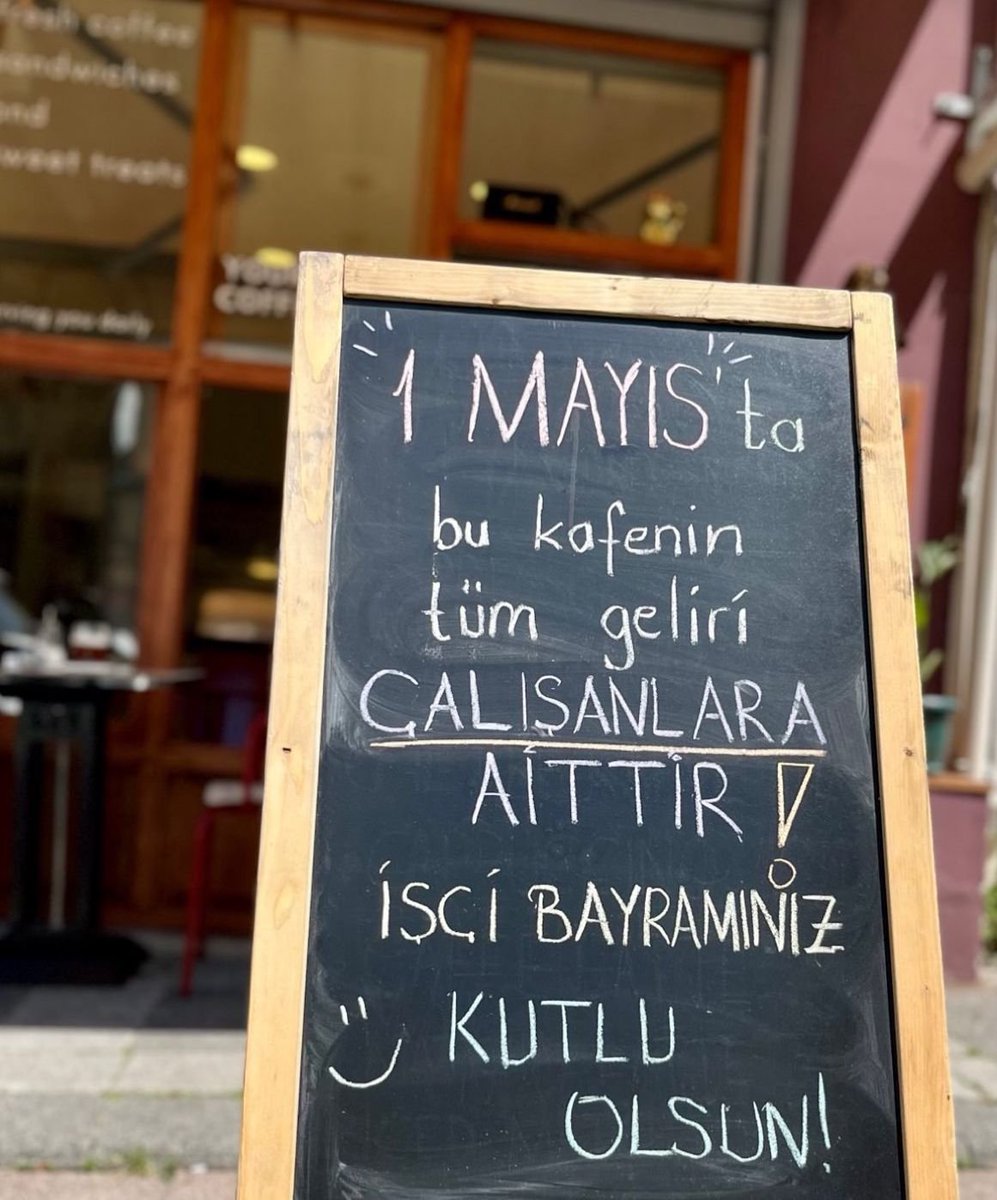 fresh coffee
sandwiches
and
sweet treats
COFF
you daily
1 MAYIS'ta
bu kafenin
tüm geliri
ÇALIŞANLARA
AİTTİR!
İŞÇİ BAYRAMINIZ
KUTLU
OLSUN!